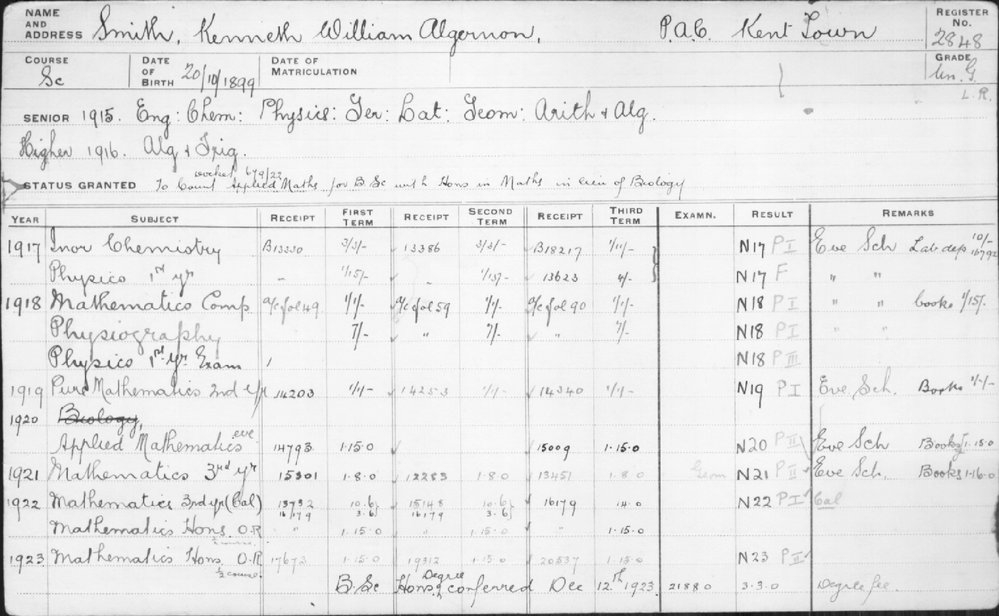 NAME AND ADDRESS Smith, Kenneth William Algernon, P.A.C. Kent Town REGISTER No. 2848
COURSE Sc DATE OF BIRTH 20/10/1899 DATE OF MATRICULATION GRADE Un. G.
L.R.
SENIOR 1915. Eng: Chem: Physics: Ger: Lat: Geom: Arith & Alg.
Higher 1916. Alg & Trig.
STATUS GRANTED To Count Applied Maths for B Sc with Hons in Maths in lieu of Biology
YEAR SUBJECT RECEIPT FIRST TERM RECEIPT SECOND TERM RECEIPT THIRD TERM EXAMN. RESULT REMARKS
1917 Inor Chemistry B13330 3/3/- 13386 3/3/- B18217 1/11/- N17 PI Eve Sch Lab dep 10/- 16792
Physics 1st yr " 1/15/- " 1/15/- 13623 4/- N17 F " "
1918 Mathematics Comp. a/c fol 49 1/1/- a/c fol 59 1/1/- a/c fol 90 1/1/- N18 PI " " books 1/15/-
Physiography 7/- " 7/- " 7/- N18 PI " "
Physics 1st yr. Exam N18 PIII
1919 Pure Mathematics 2nd yr 14203 1/1/- 14253 1/1/- 14340 1/1/- N19 PI Eve Sch. Books 1/1/-
1920 Biology,
Applied Mathematics eve 14793 1.15.0 15009 1.15.0 N20 PII Eve Sch Books 1.15.0
1921 Mathematics 3rd yr 15301 1.8.0 12283 1.8.0 13451 1.8.0 Geom N21 PII Eve Sch. Books 1.16.0
1922 Mathematics 3rd yr (Cal) 13732 10.6 15148 10.6 16179 14.0 N22 PI Cal
16179 3.6 16179 3.6
Mathematics Hons. O.R " 1.15.0 " 1.15.0 " 1.15.0
½ course
1923 Mathematics Hons. O.R 17672 1.15.0 19312 1.15.0 20537 1.15.0 N23 PII
½ course.
B.Sc Hons Degree conferred Dec 12th 1923 21880 3.3.0 Degree fee.